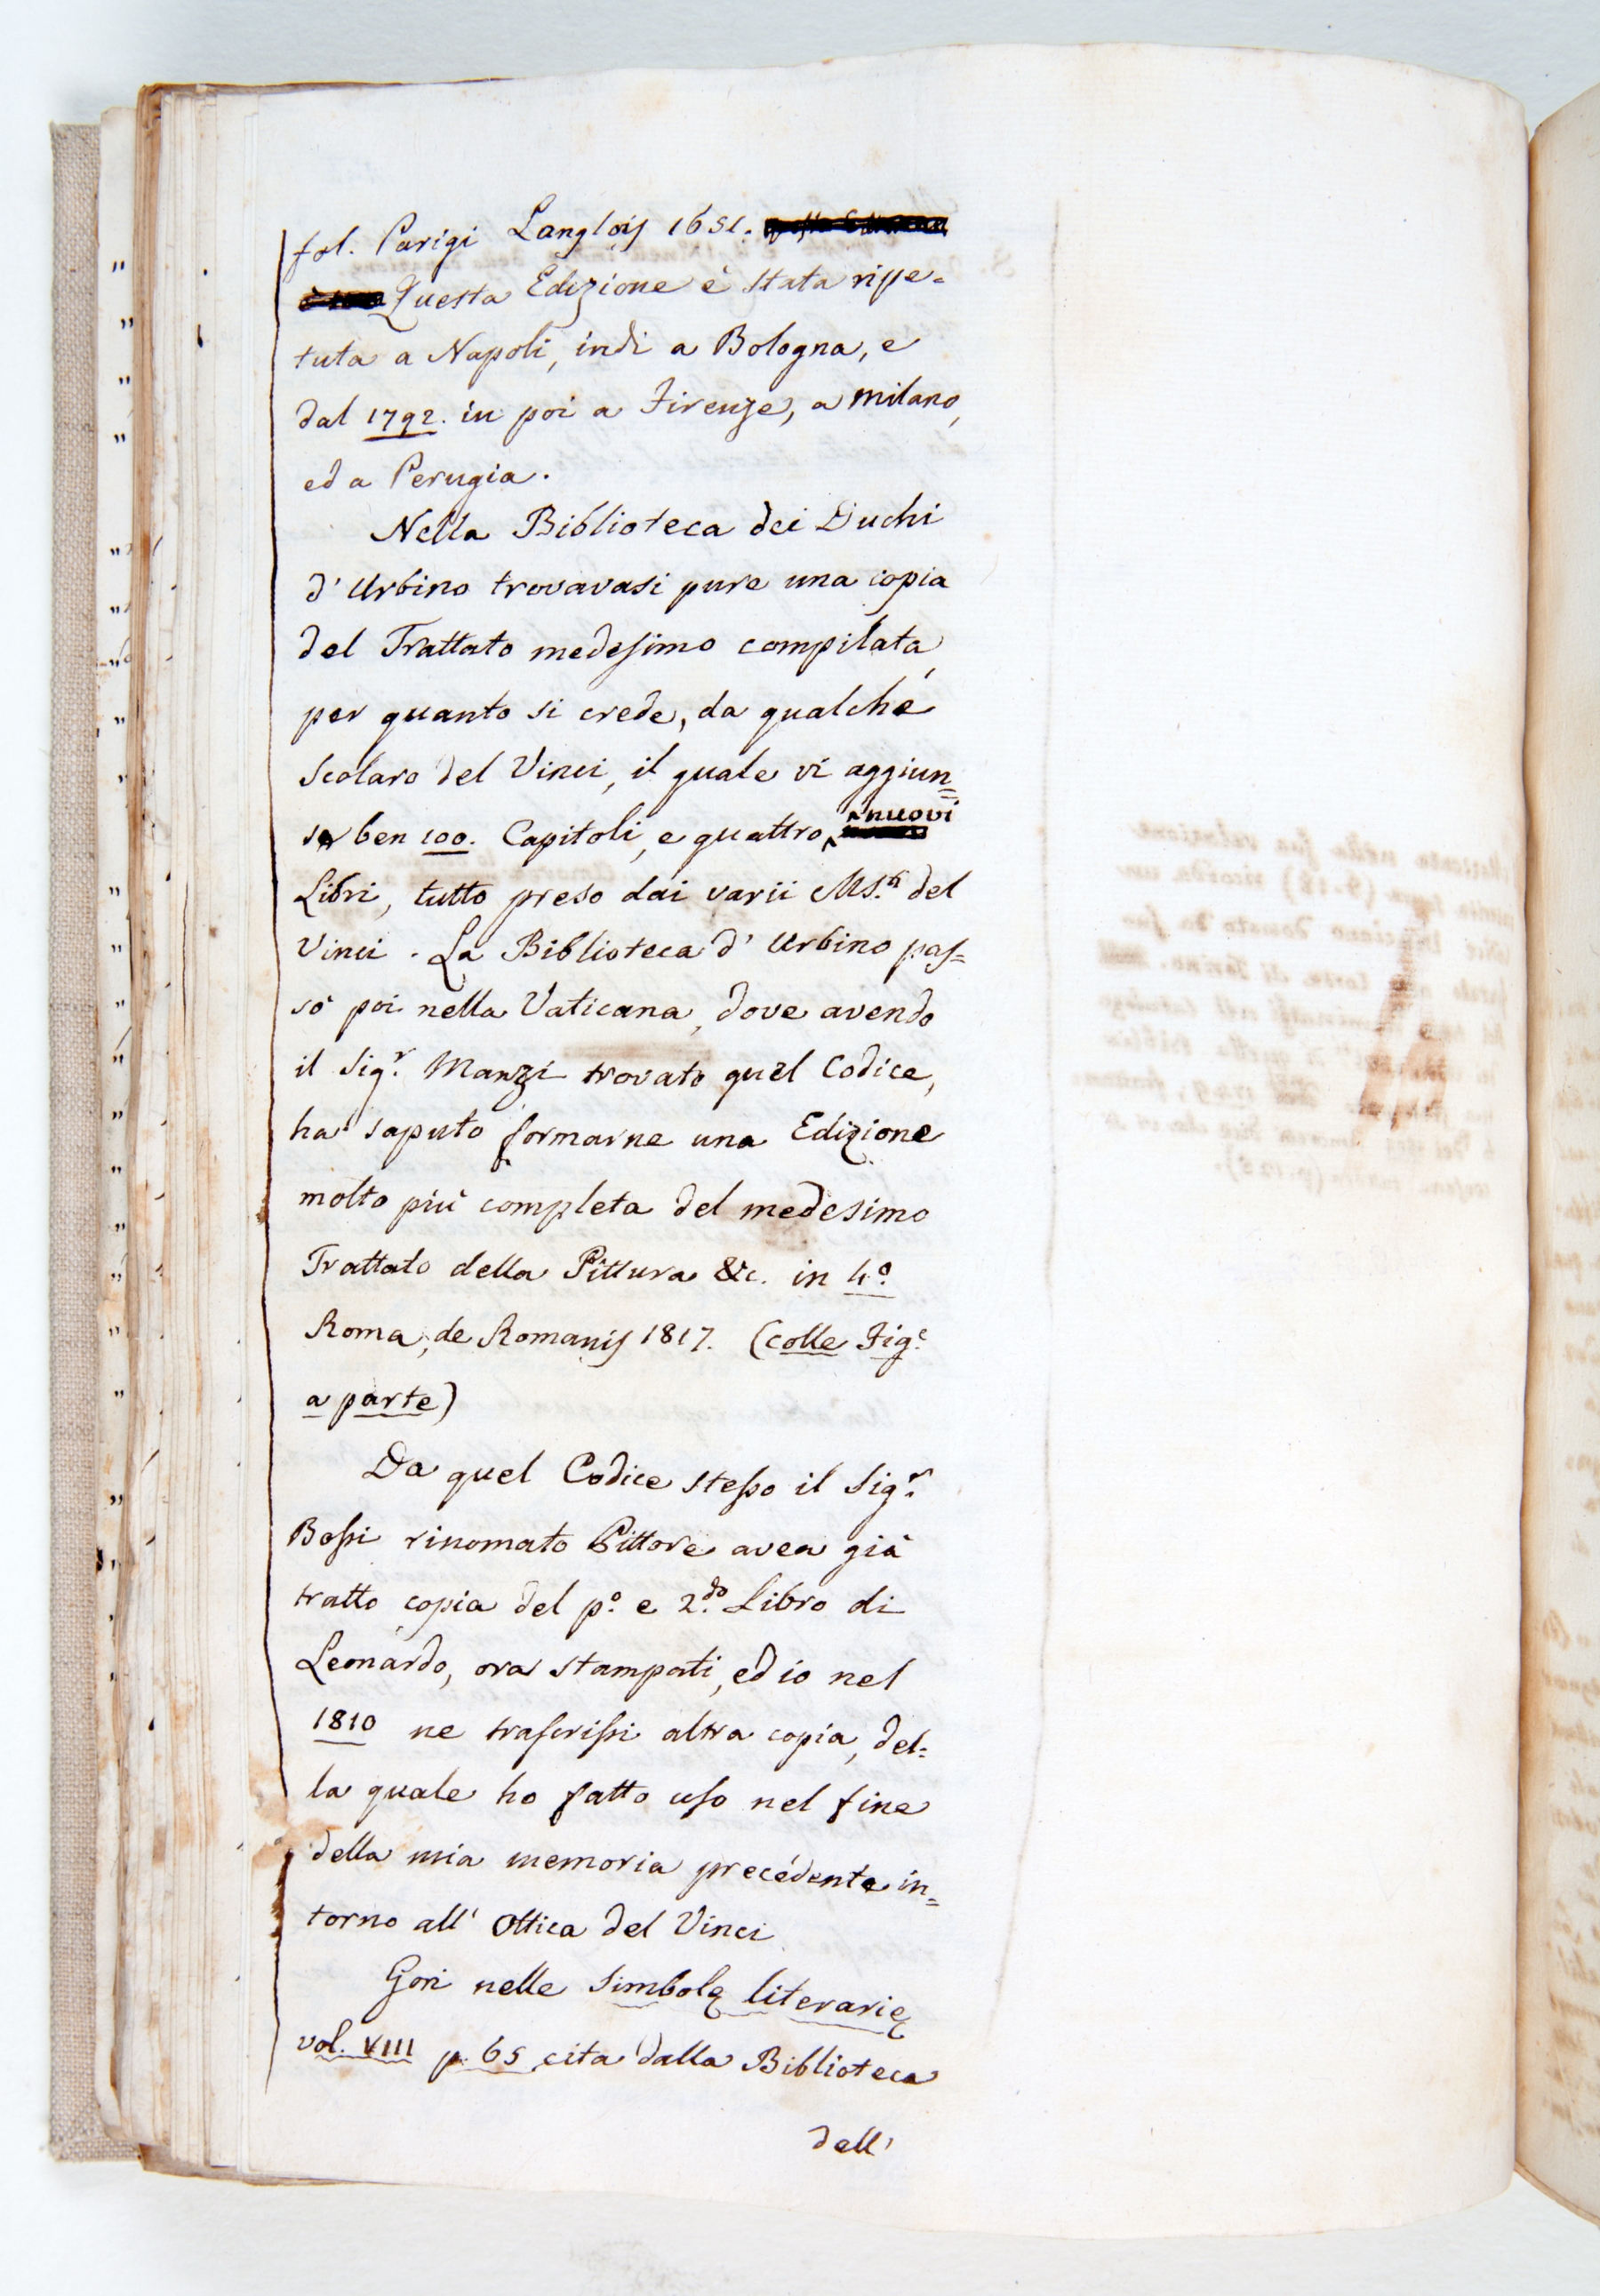 fol. Parigi Langlois 1651.
Questa Edizione è stata ripe=
tuta a Napoli, indi a Bologna, e
dal 1792. in poi a Firenze, a Milano,
ed a Perugia.
Nella Biblioteca dei Duchi
d' Urbino trovavasi pure una copia
del Trattato medesimo compilata,
per quanto si crede, da qualche
scolaro del Vinci, il quale vi aggiun=
se ben 100. Capitoli, e quattro nuovi
Libri, tutto preso dai varii MS.ti del
Vinci. La Biblioteca d' Urbino pas=
sò poi nella Vaticana, dove avendo
il Sig.r Manzi trovato quel Codice,
ha saputo formarne una Edizione
molto più completa del medesimo
Trattato della Pittura &c. in 4.o
Roma, de Romanis 1817. (colle Fig.e
a parte)
Da quel Codice stesso il Sig.r
Bossi rinomato Pittore avea già
tratto copia del p.o e 2.do Libro di
Leonardo, ora stampati, ed io nel
1810 ne trascrissi altra copia, del=
la quale ho fatto uso nel fine
della mia memoria precedente in=
torno all' Ottica del Vinci
Gori nelle Simbolę literarię
vol. VIII p. 65 cita dalla Biblioteca
dell'